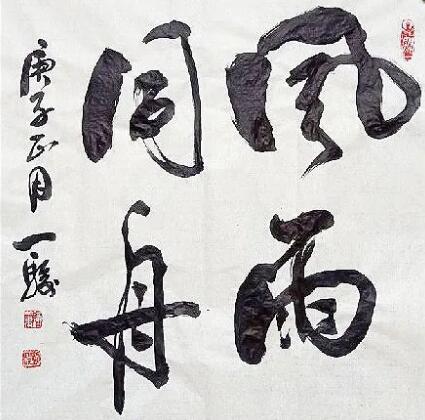 风雨
同舟
庚子正月一骏